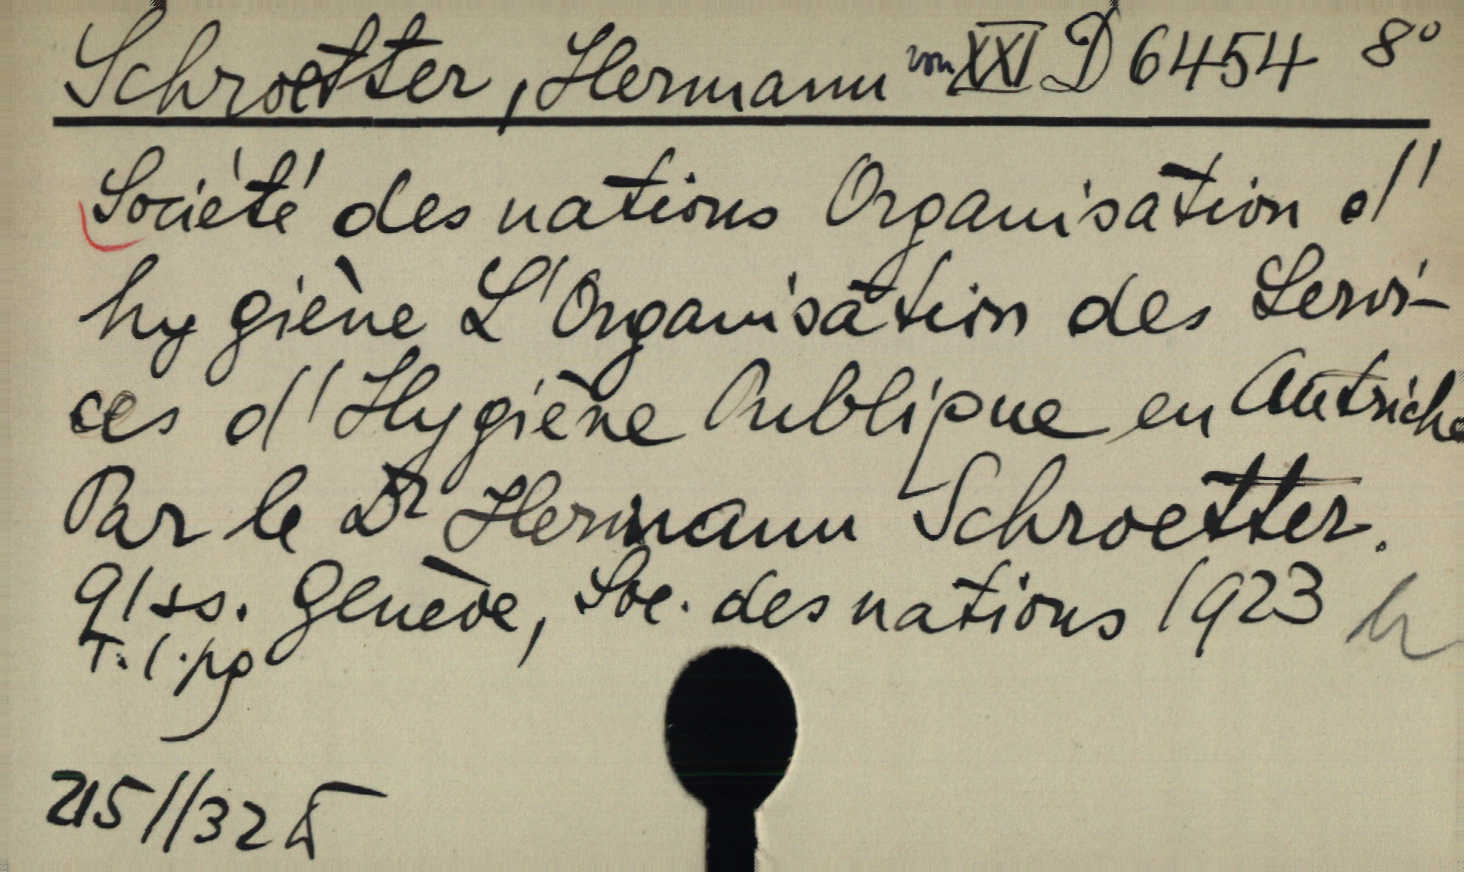 Schroetter, Hermann von XXI D 6454 8°
Société des nations Organisation d'
hygiène L'Organisation des Servi-
ces d'Hygiène Publique en Autriche
Par le Dr Hermann Schroetter.
91 ss. Genève, Soc. des nations 1923
T. 1. pg
215//32